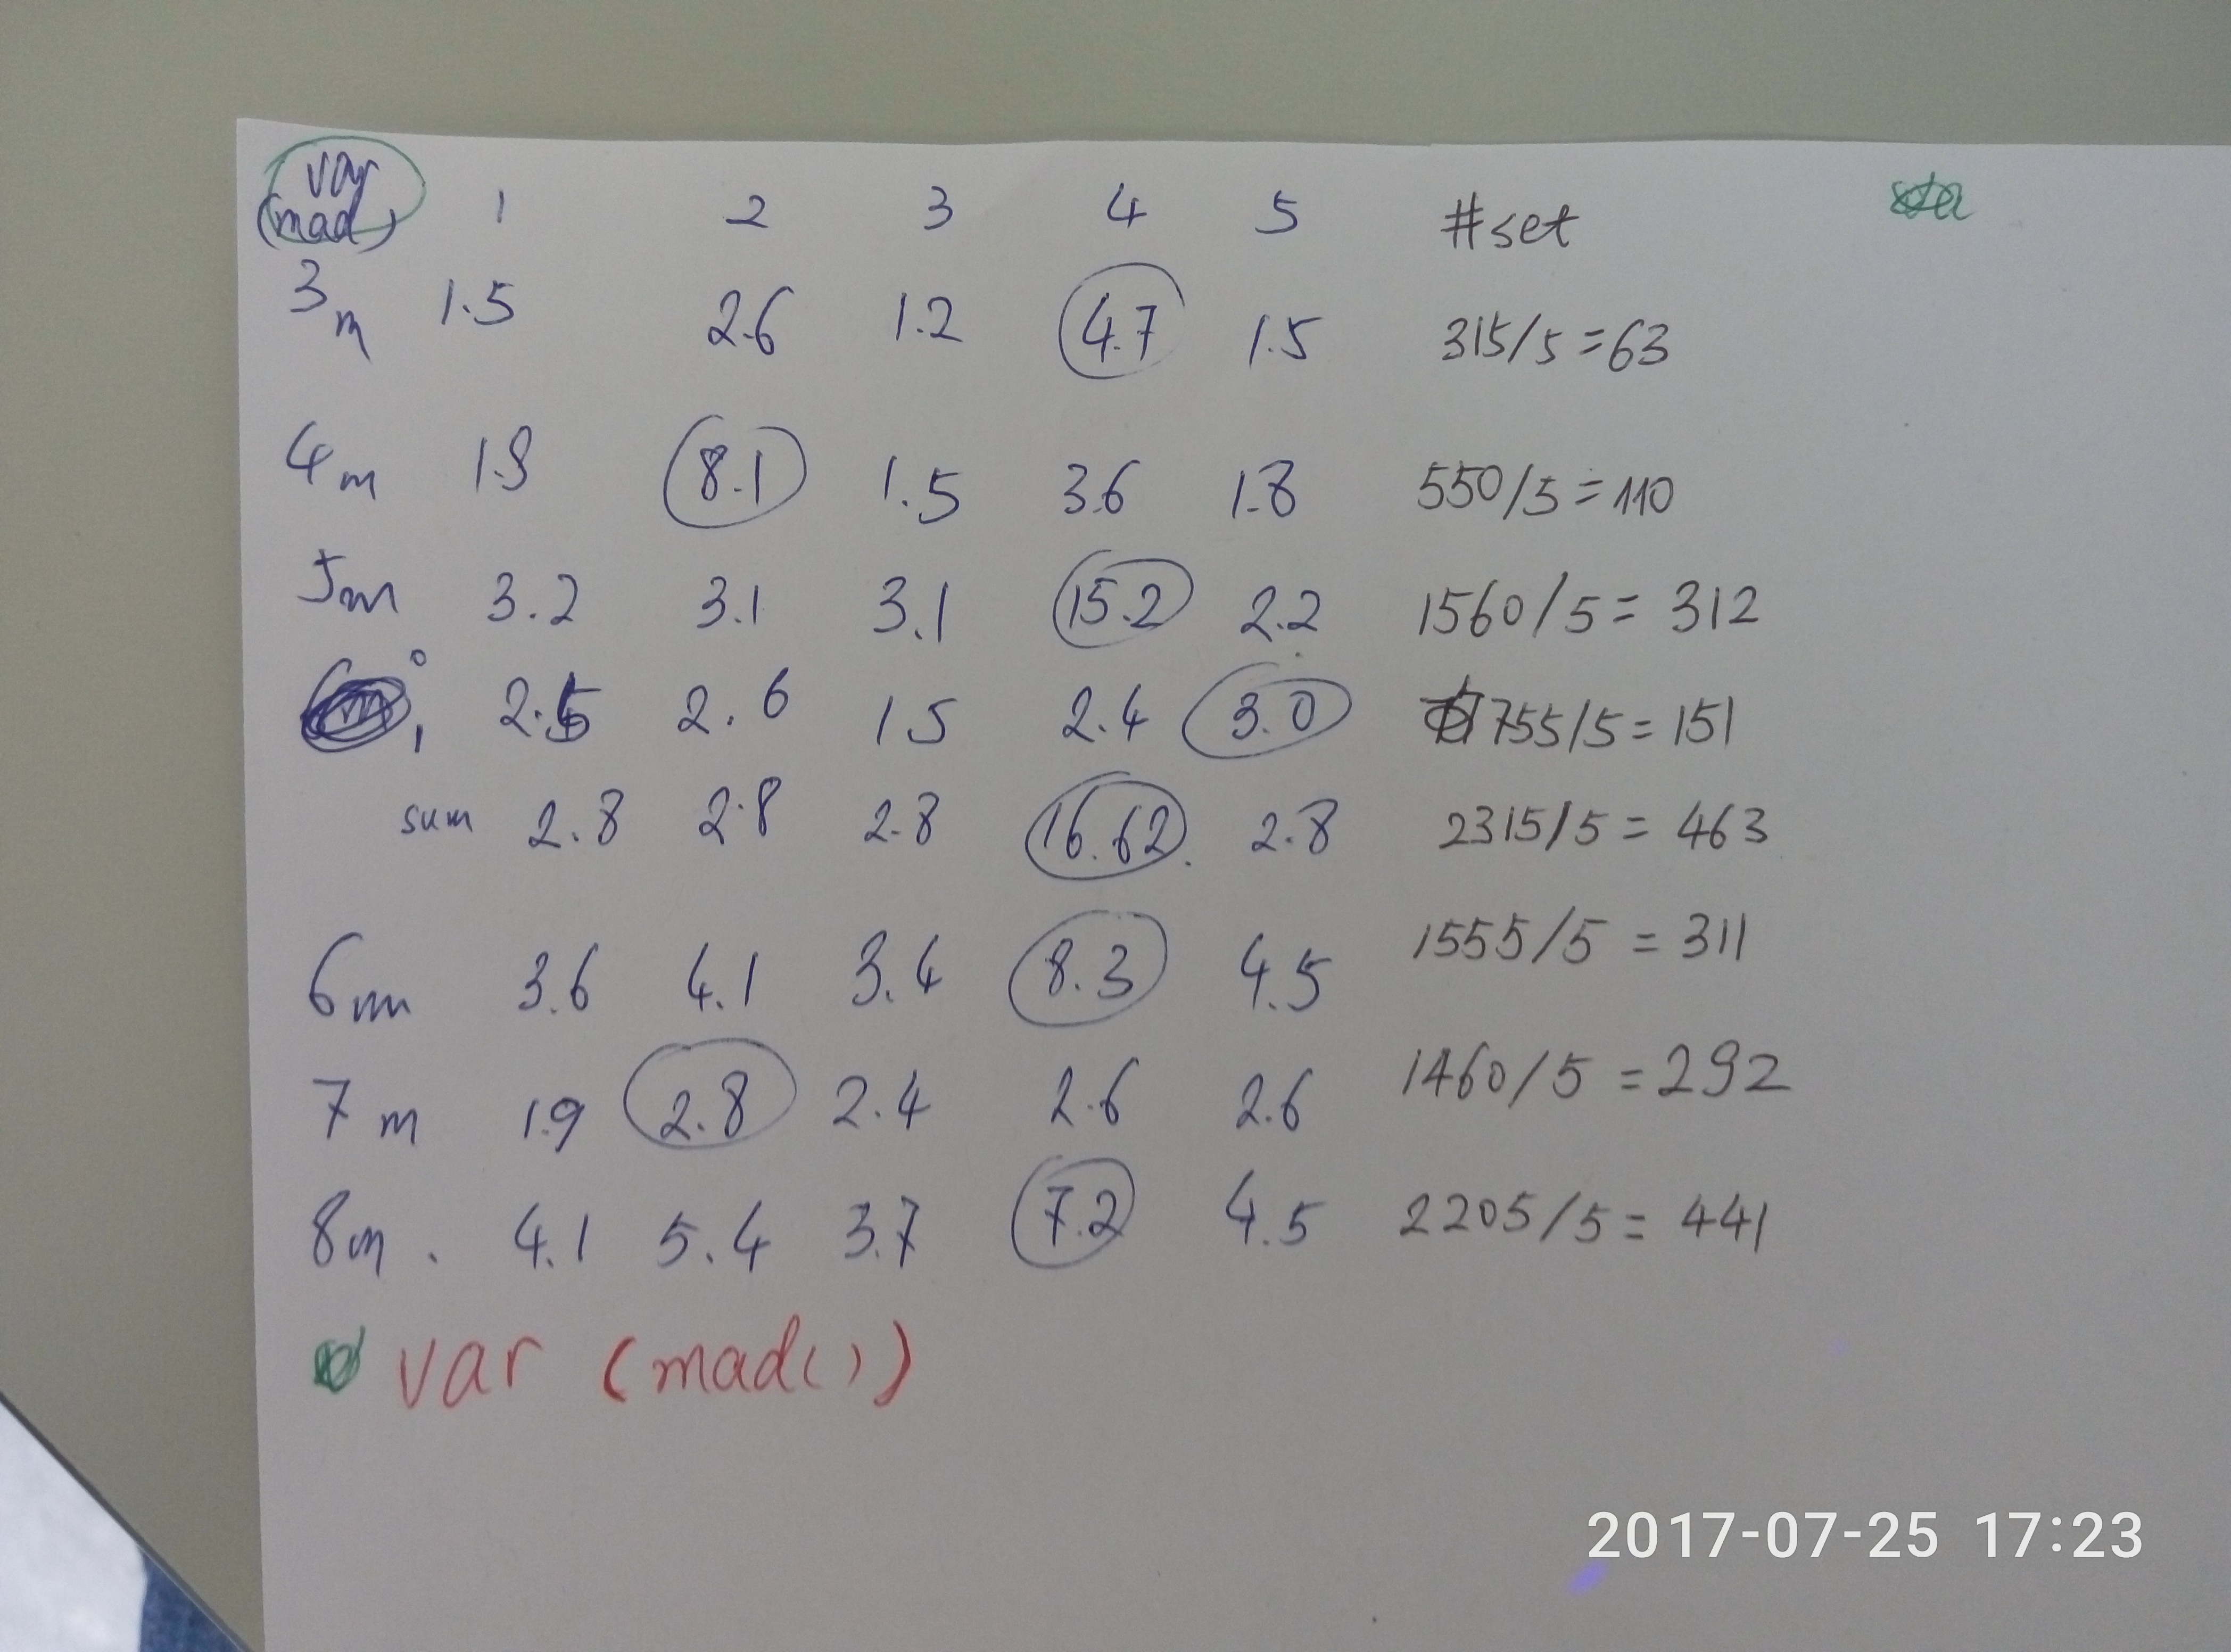 var
(mad) 1 2 3 4 5 #set
3m 1.5 2.6 1.2 4.7 1.5 315/5=63
4m 1.9 8.1 1.5 3.6 1.8 550/5=110
5m 3.2 3.1 3.1 15.2 2.2 1560/5= 312
2.6 1.5 2.4 3.0 755/5=151
sum 2.8 2.8 2.8 16.62 2.8 2315/5= 463
6m 3.6 4.1 3.4 8.3 4.5 1555/5 = 311
7m 1.9 2.8 2.4 2.6 2.6 1460/5 =292
8m. 4.1 5.4 3.7 7.2 4.5 2205/5= 441
var (mad())
2017-07-25 17:23